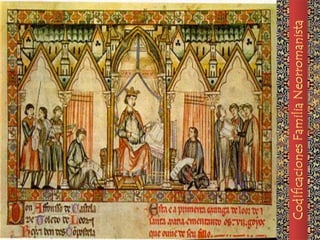 Don Affonsso de Castela
de Toledo de Leon
Rey e ben des Cõpostela
Esta e a primeira cantiga de loor de
santa maria ementando os .vij. goyos
que ouue de seu fillo.
Codificaciones Familia Neorromanista